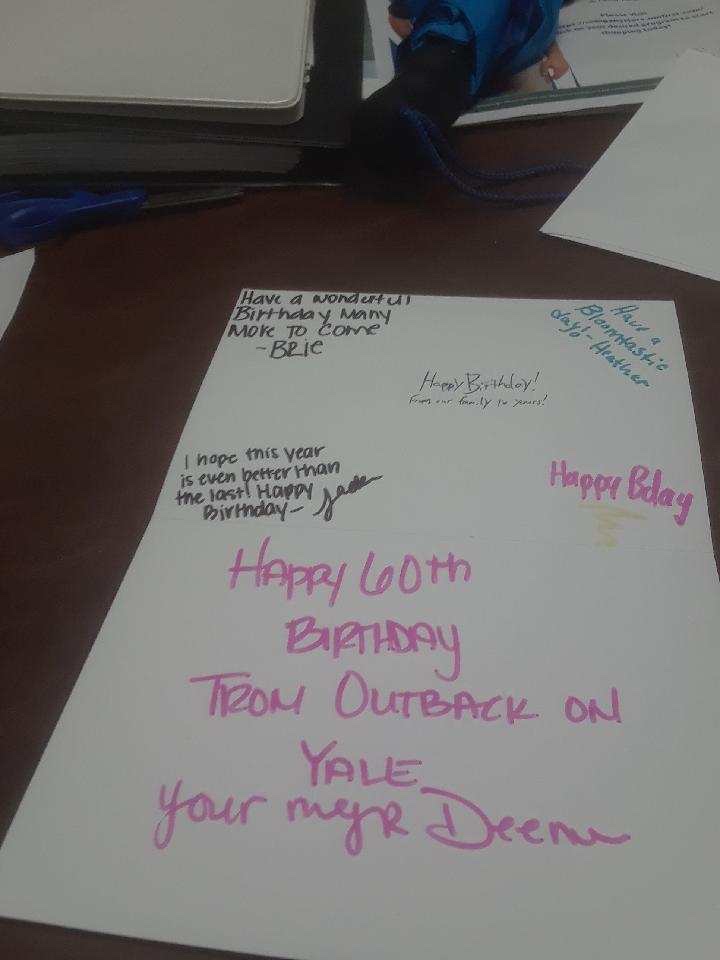 Please Visit
changing today!
Have a wonderful
Birthday Many
More To Come
-BRIE
Have a
Bloomtastic
day! - Heather
Happy Birthday!
From our family to yours!
I hope this year
is even better than
the last! Happy
Birthday - Jade
Happy Bday
HAPPY 60TH
BIRTHDAY
FROM OUTBACK ON
YALE
your mgR